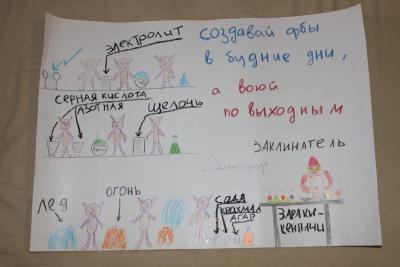 ЭЛЕКТРОЛИТ
СОЗДАВАЙ ФБЫ
В БУДНИЕ ДНИ,
А ВОЮЙ
ПО ВЫХОДНЫМ
СЕРНАЯ КИСЛОТА
АЗОТНАЯ
ЩЕЛОЧЬ
ЗАКЛИНАТЕЛЬ
ЛЁД
ОГОНЬ
СОДА
КРАХМАЛ
АГАР
ЗАРАКИ-
КЕНПАЧИ